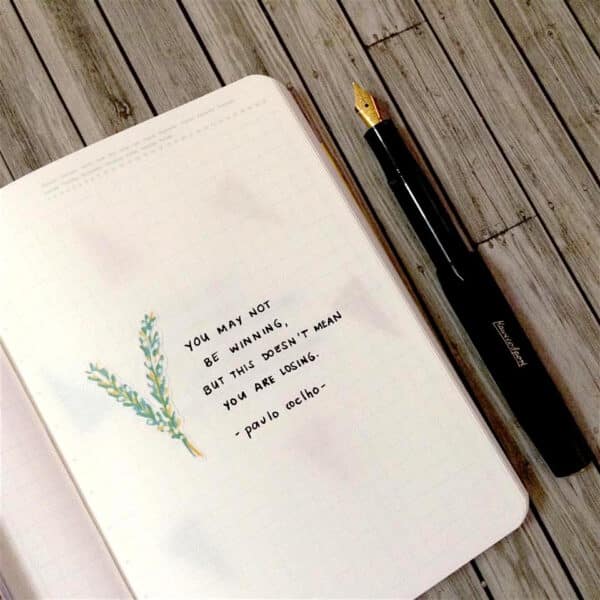 YOU MAY NOT
BE WINNING,
BUT THIS DOESN'T MEAN
YOU ARE LOSING.
- paulo coelho -